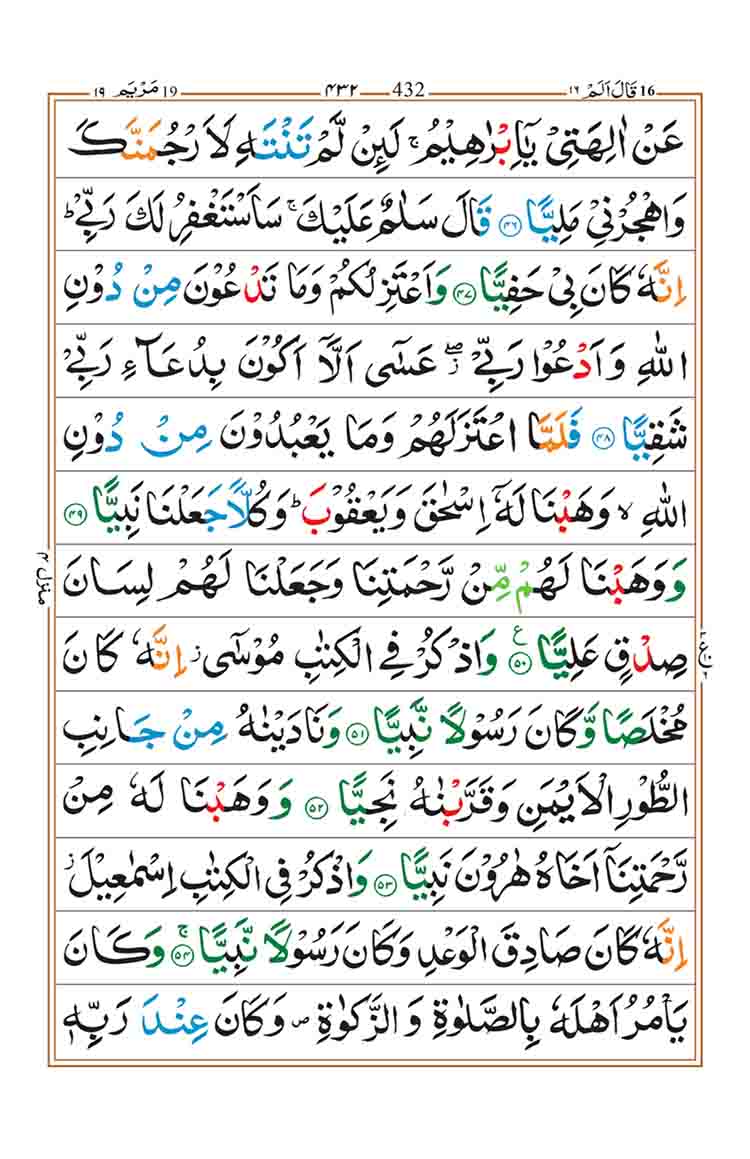 19 مَرْيَم ١٩ ٤٣٢ 432 16 قَالَ اَلَمْ ١٦
عَنْ اٰلِهَتِیْ یٰۤاِبْرٰهِیْمُ ۚ لَىِٕنْ لَّمْ تَنْتَهِ لَاَرْجُمَنَّكَ
وَاهْجُرْنِیْ مَلِیًّا ۝۴۶ قَالَ سَلٰمٌ عَلَیْكَ ۚ سَاَسْتَغْفِرُ لَكَ رَبِّیْ ؕ
اِنَّهٗ كَانَ بِیْ حَفِیًّا ۝۴۷ وَاَعْتَزِلُكُمْ وَمَا تَدْعُوْنَ مِنْ دُوْنِ
اللّٰهِ وَاَدْعُوْا رَبِّیْ ۖؗ عَسٰۤی اَلَّاۤ اَكُوْنَ بِدُعَآءِ رَبِّیْ
شَقِیًّا ۝۴۸ فَلَمَّا اعْتَزَلَهُمْ وَمَا یَعْبُدُوْنَ مِنْ دُوْنِ
اللّٰهِ ۙ وَهَبْنَا لَهٗۤ اِسْحٰقَ وَیَعْقُوْبَ ؕ وَكُلًّا جَعَلْنَا نَبِیًّا ۝۴۹
وَوَهَبْنَا لَهُمْ مِّنْ رَّحْمَتِنَا وَجَعَلْنَا لَهُمْ لِسَانَ
صِدْقٍ عَلِیًّا ۝۵۰ ع وَاذْكُرْ فِی الْكِتٰبِ مُوْسٰۤی ؗ اِنَّهٗ كَانَ
مُخْلَصًا وَّكَانَ رَسُوْلًا نَّبِیًّا ۝۵۱ وَنَادَیْنٰهُ مِنْ جَانِبِ
الطُّوْرِ الْاَیْمَنِ وَقَرَّبْنٰهُ نَجِیًّا ۝۵۲ وَوَهَبْنَا لَهٗ مِنْ
رَّحْمَتِنَاۤ اَخَاهُ هٰرُوْنَ نَبِیًّا ۝۵۳ وَاذْكُرْ فِی الْكِتٰبِ اِسْمٰعِیْلَ ؗ
اِنَّهٗ كَانَ صَادِقَ الْوَعْدِ وَكَانَ رَسُوْلًا نَّبِیًّا ۚ۝۵۴ وَكَانَ
یَاْمُرُ اَهْلَهٗ بِالصَّلٰوةِ وَالزَّكٰوةِ ۪ وَكَانَ عِنْدَ رَبِّهٖ
منزل ۴